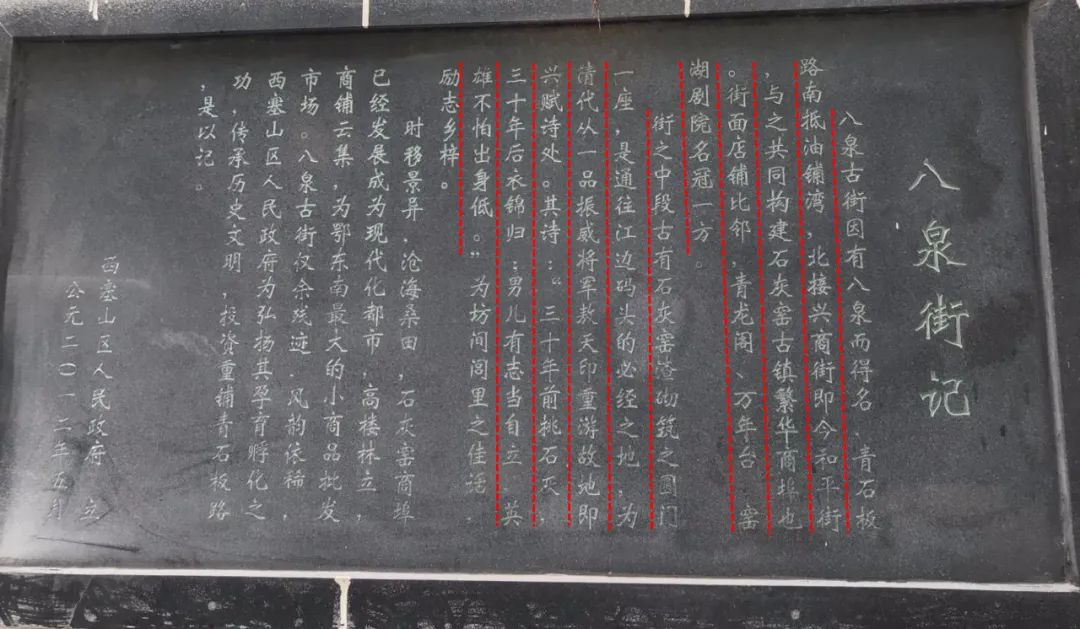 八泉街记
八泉古街因有八泉而得名、青石板
路南抵油铺湾，北接兴商街即今和平街
，与之共同构建石灰窑古镇繁华商埠也
。街面店铺比邻，青龙阁、万年台、窑
湖剧院名冠一方。
街之中段古有石灰窑渣砌筑之圆门
一座，是通往江边码头的必经之地，为
清代从一品振威将军敖天印重游故地即
兴赋诗处。其诗：“三十年前挑石灰，
三十年后衣锦归；男儿有志当自立，英
雄不怕出身低。”为坊间闾里之佳话，
励志乡梓。
时移景异，沧海桑田，石灰窑商埠
已经发展成为现代化都市，高楼林立，
商铺云集，为鄂东南最大的小商品批发
市场。八泉古街仅余残迹，风韵依稀，
西塞山区人民政府为弘扬其孕育孵化之
功，传承历史文明，投资重铺青石板路
，是以记。
西塞山区人民政府 立
公元二〇一二年五月